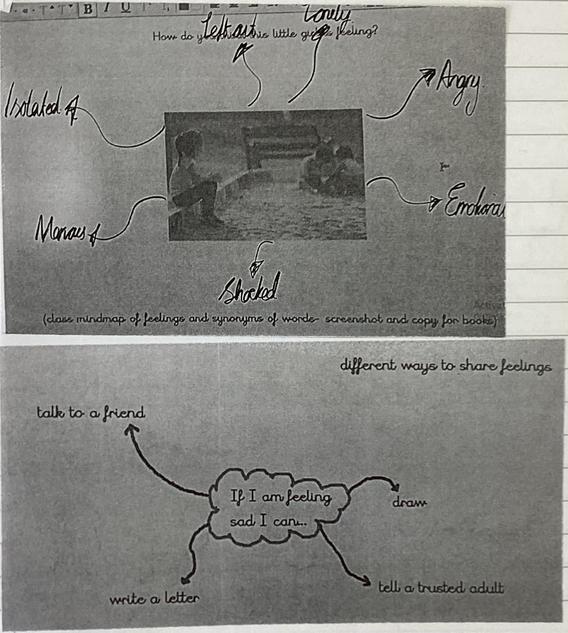 B I U
Left out
Lonely
How do y this little girl is feeling?
Isolated
Angry
Emotional
Shocked
(class mindmap of feelings and synonyms of words- screenshot and copy for books)
different ways to share feelings
talk to a friend
If I am feeling
sad I can...
draw
tell a trusted adult
write a letter